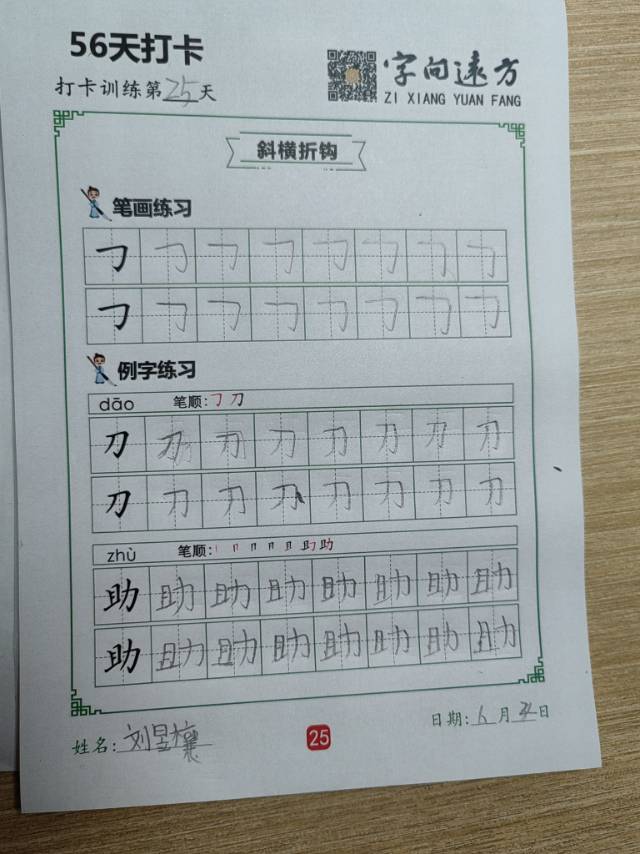 56天打卡
打卡训练第25天
字向远方
ZI XIANG YUAN FANG
斜横折钩
笔画练习
㇆ ㇆ ㇆ ㇆ ㇆ ㇆ ㇆ ㇆
㇆ ㇆ ㇆ ㇆ ㇆ ㇆ ㇆ ㇆
例字练习
dāo 笔顺:㇆刀
刀 刀 刀 刀 刀 刀 刀 刀
刀 刀 刀 刀 刀 刀 刀 刀
zhù 笔顺:丨 冂 冂 月 且 助 助
助 助 助 助 助 助 助 助
助 助 助 助 助 助 助 助
姓名:刘昱
25
日期:6月 日